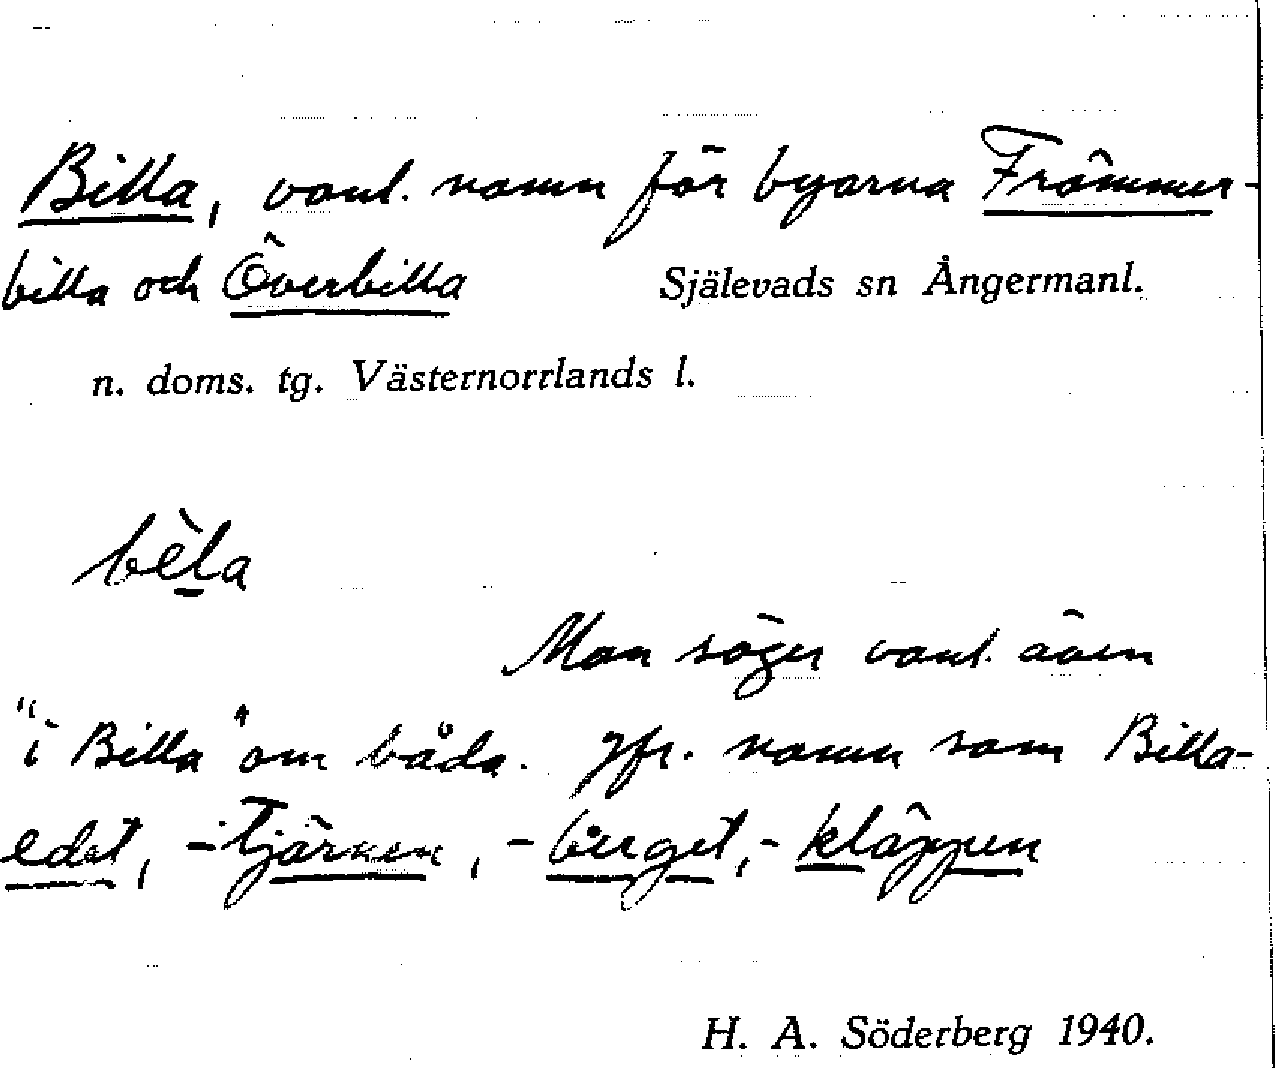 Billa, vanl. namn för byarna Främmer-
billa och Överbilla Själevads sn Ångermanl.
n. doms. tg. Västernorrlands l.
bèla
Man säger vanl. även
"i Billa" om båda. Jfr. namn som Billa-
edet, -tjärnen, -berget, -kläppen
H. A. Söderberg 1940.